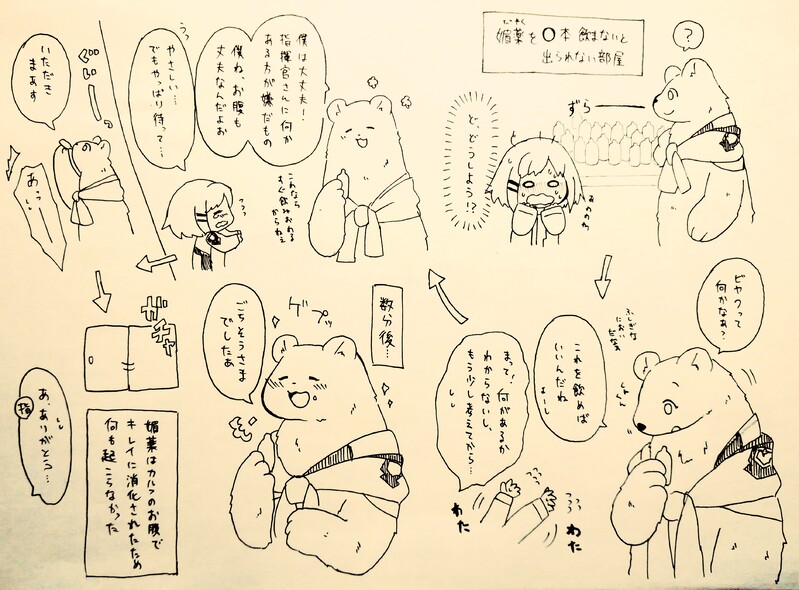 媚薬を〇本飲まないと
出られない部屋
びやく
?
ずらーーー
ど、どうしよう!?
あわわわ
ビヤクって
何かなぁ?
ふしぎな
においだなぁ
くんくん
これを飲めば
いいんだね
よーし
まって!何があるか
わからないし、
もう少し考えてから…
わた
わた
僕は大丈夫!
指揮官さんに何か
ある方が嫌だもの
僕ね、お腹も
丈夫なんだよぉ
これなら
すぐ飲みおわる
からねぇ
うっ
やさしい…
でもやっぱり待って…
いただき
まぁす
ぐいーっ
あ、
数分後…
ゲプッ
ごちそうさま
でしたぁ
ガチャ
媚薬はカルフのお腹で
キレイに消化されたため
何も起こらなかった
あ、ありがとう…
指